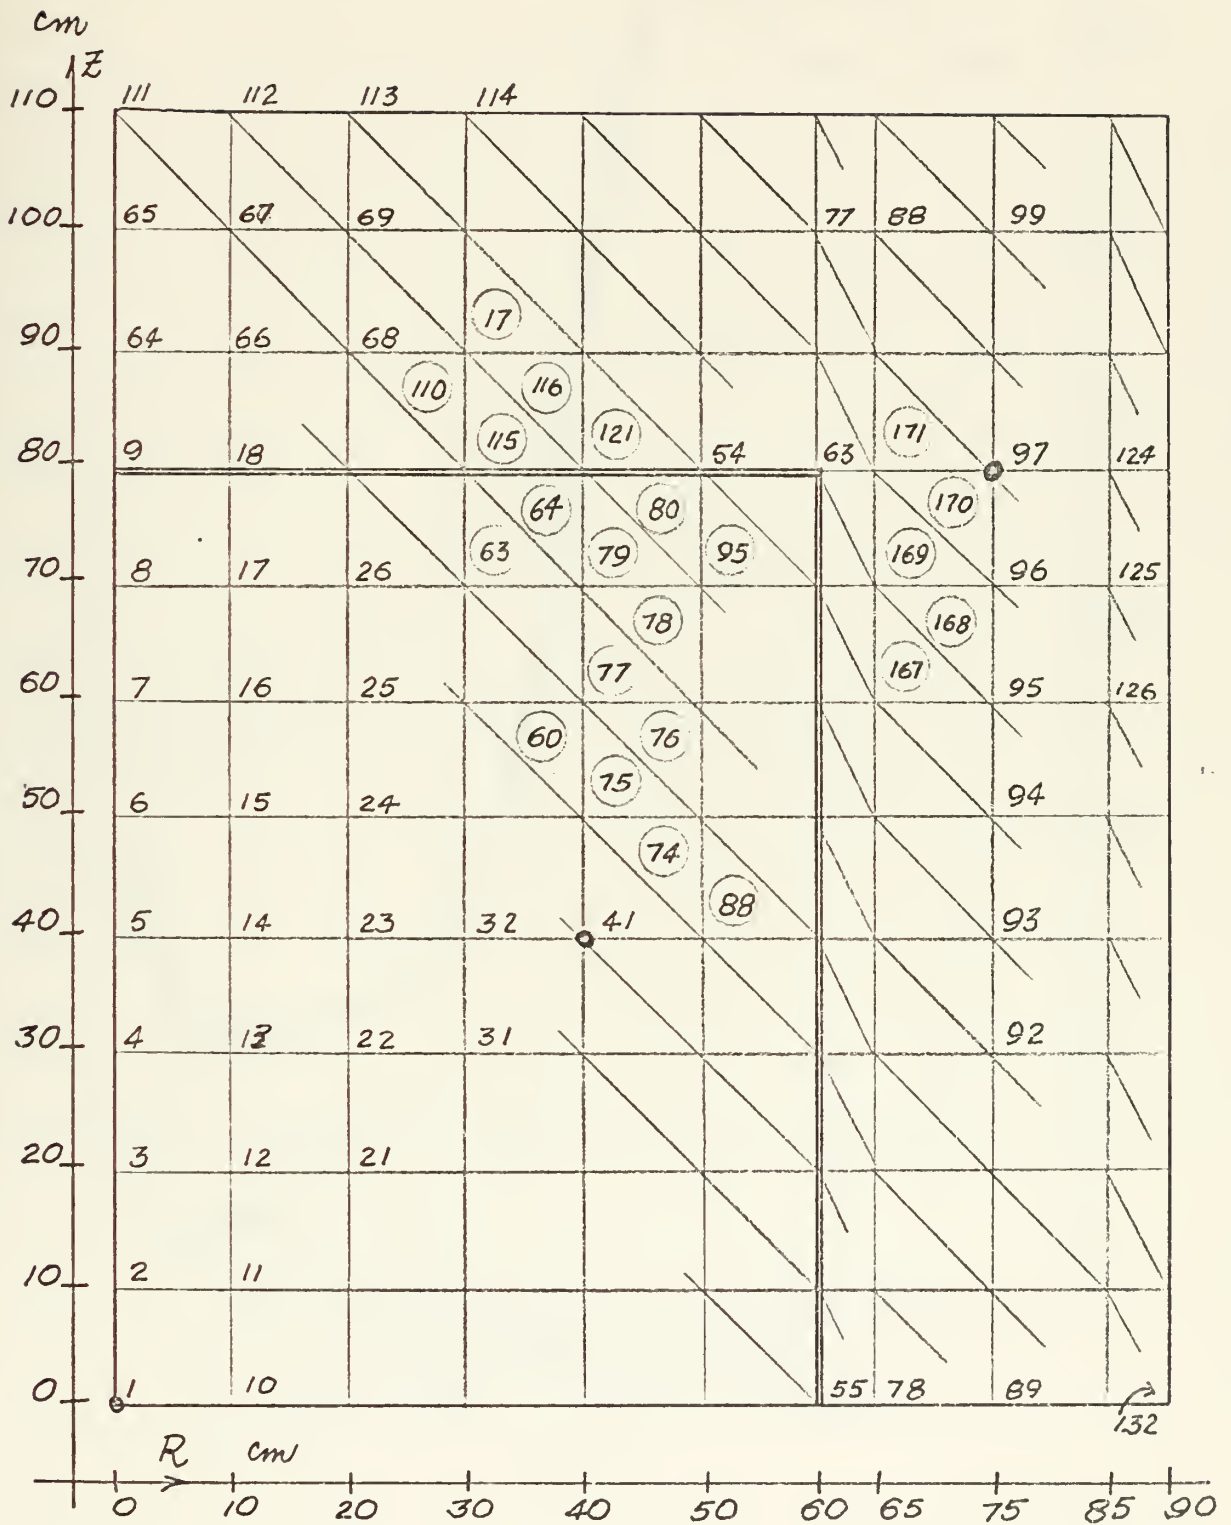 cm
Z
110 111 112 113 114
100 65 67 69 77 88 99
17
90 64 66 68
110 116
115 121 171
80 9 18 54 63 97 124
64 80 170
63 79 95 169
70 8 17 26 96 125
78 168
77 167
60 7 16 25 95 126
60 76
75
50 6 15 24 94
74
88
40 5 14 23 32 41 93
30 4 13 22 31 92
20 3 12 21
10 2 11
0 1 10 55 78 89
132
R cm
0 10 20 30 40 50 60 65 75 85 90